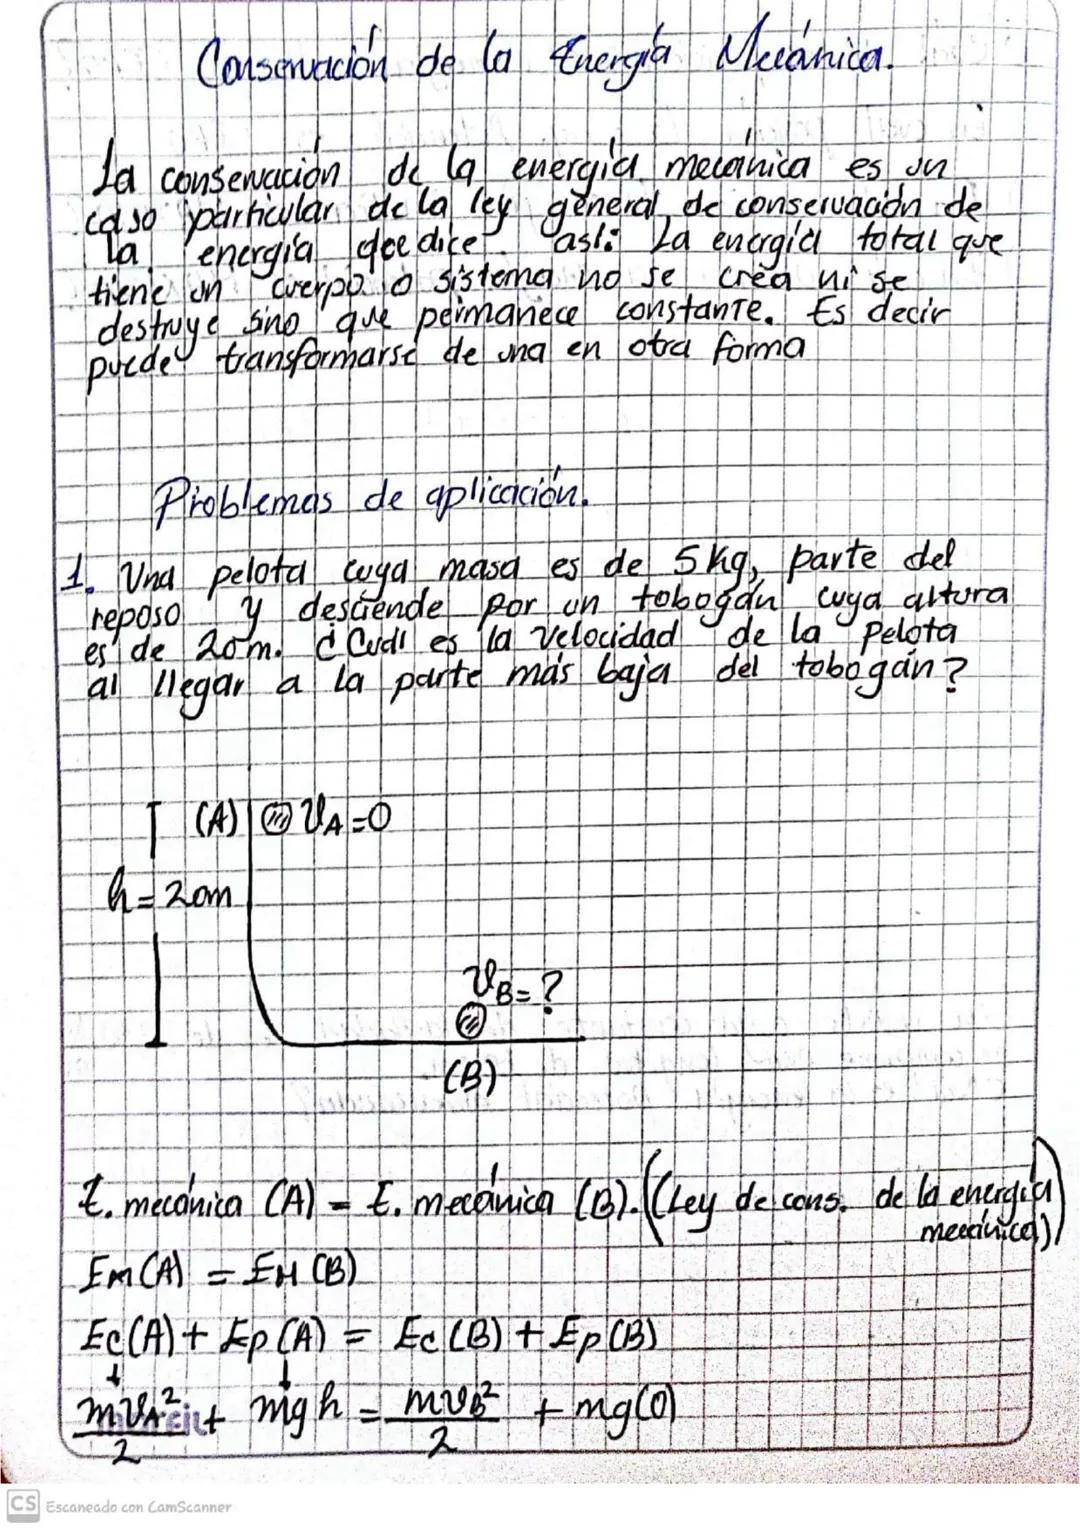 Conservación de la Energía Mecánica.
La conservación de la energía mecánica es un
caso particular de la ley general de conservación de
la energía que dice así: La energía total que
tiene un cuerpo o sistema no se crea ni se
destruye sino que permanece constante. Es decir
puede transformarse de una en otra forma
Problemas de aplicación.
1. Una pelota cuya masa es de 5 Kg, parte del
reposo y desciende por un tobogán cuya altura
es de 20m. ¿Cuál es la velocidad de la pelota
al llegar a la parte más baja del tobogán?
(A) VA=0
h=20m
VB=?
(B)
E. mecánica (A) = E. mecánica (B). ((Ley de cons. de la energía
mecánica))
EM(A) = EM(B)
Ec(A) + Ep(A) = Ec(B) + Ep(B)
mVA²/2 + mgh = mVB²/2 + mg(0)
CS Escaneado con CamScanner